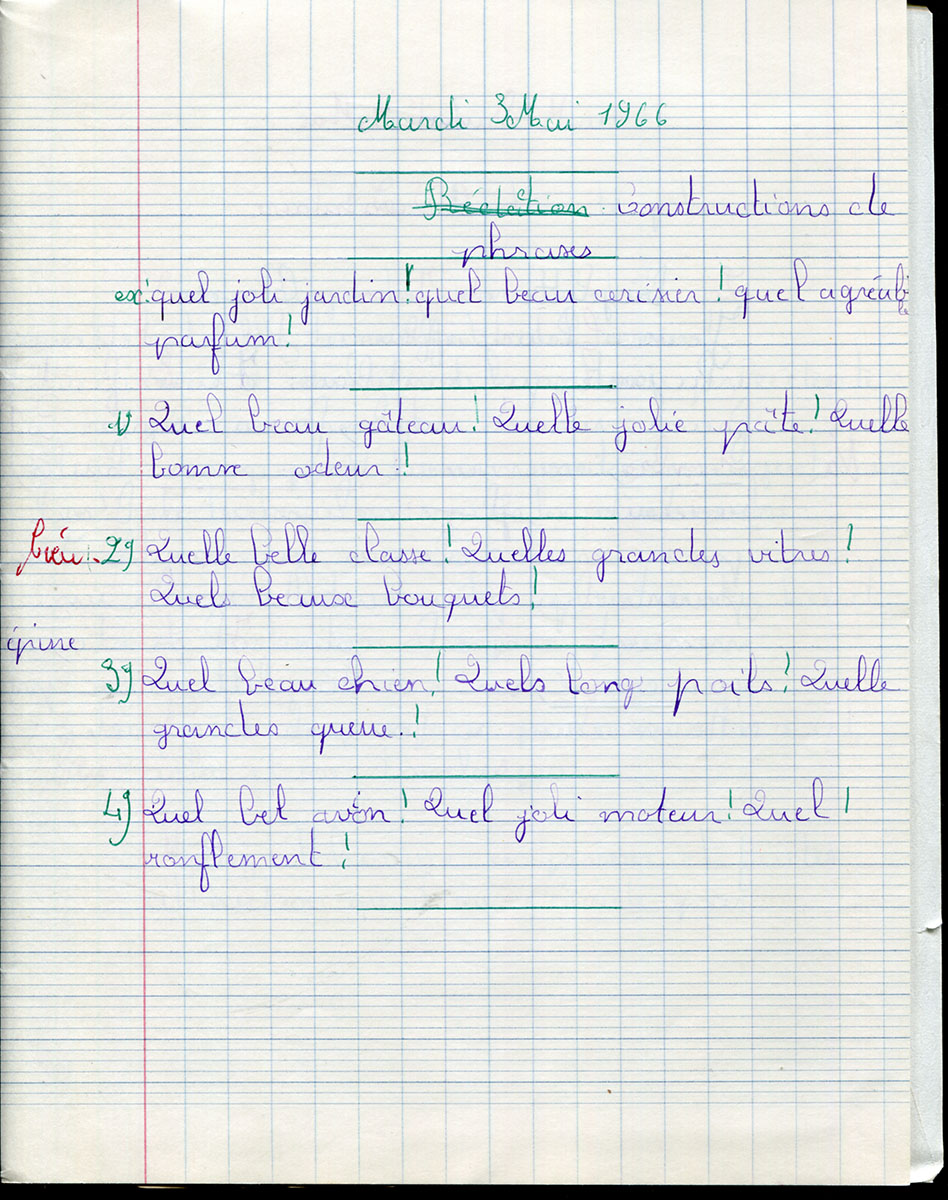 Mardi 3 Mai 1966
Récitation Constructions de
phrases
ex: quel joli jardin! quel beau cerisier! quel agréable
parfum!
1) Quel beau gâteau! Quelle jolie pâte! Quelle
bonne odeur!
bien 2) Quelle belle classe! Quelles grandes vitres!
Quels beaux bouquets!
épine
3) Quel beau chien! Quels long poils! Quelle
grandes queue.!
4) Quel bel avion! Quel joli moteur! Quel!
ronflement!